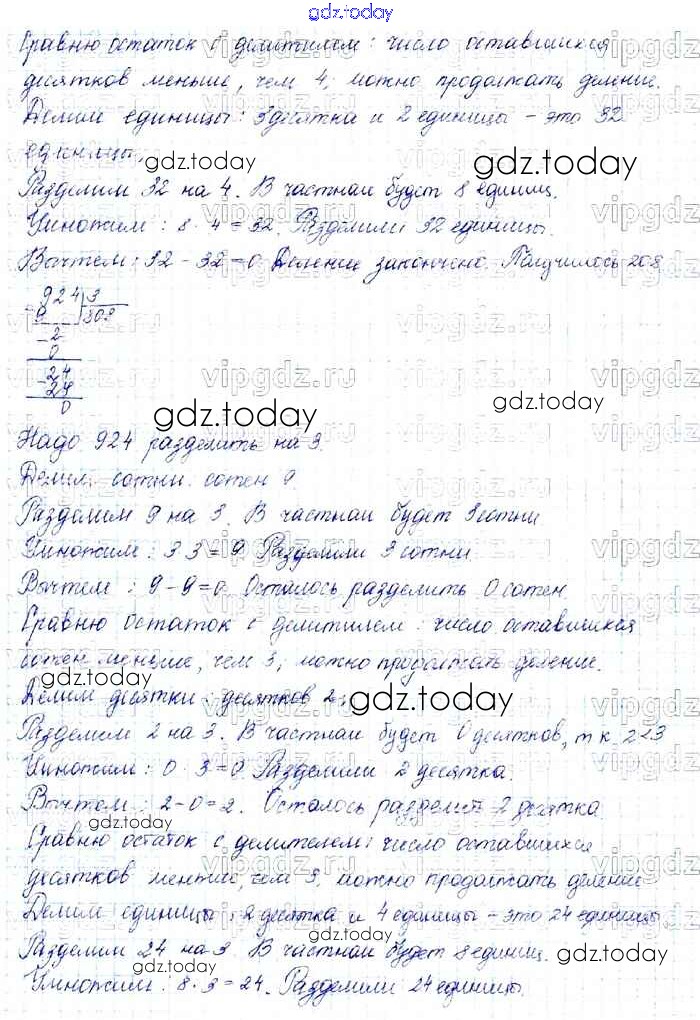 gdz.today
Сравню остаток с делителем: число оставшихся
десятков меньше, чем 4, можно продолжать деление.
Делим единицы: 3 десятка и 2 единицы - это 32
единицы.
gdz.today
gdz.today
Разделим 32 на 4. В частном будет 8 единиц.
Умножим: 8·4=32. Разделили 32 единицы.
Вычтем: 32-32=0 Деление закончено. Получилось 208
924 3
-9 309
-2
0
-24
24
0
gdz.today
gdz.today
Надо 924 разделить на 3.
Делим сотни: сотен 9.
Разделим 9 на 3. В частном будет 3 сотни
Умножим: 3 3=9 Разделили 3 сотни.
Вычтем: 9-9=0. Осталось разделить 0 сотен.
Сравню остаток с делителем: число оставшихся
сотен меньше, чем 3, можно продолжать деление.
Делим десятки: десятков 2,
gdz.today
Разделим 2 на 3. В частном будет 0 десятков, т к 2<3
Умножим: 0·3=0 Разделили 2 десятка.
Вычтем: 2-0=2. Осталось разделить 2 десятка
gdz.today
Сравню остаток с делителем: число оставшихся
десятков меньше, чем 3, можно продолжать деление
Делим единицы: 2 десятка и 4 единицы - это 24 единицы
gdz.today
Разделим 24 на 3 В частном будет 8 единиц.
gdz.today
Умножим: 8·3=24. Разделили 24 единицы.
vipgdz.ru